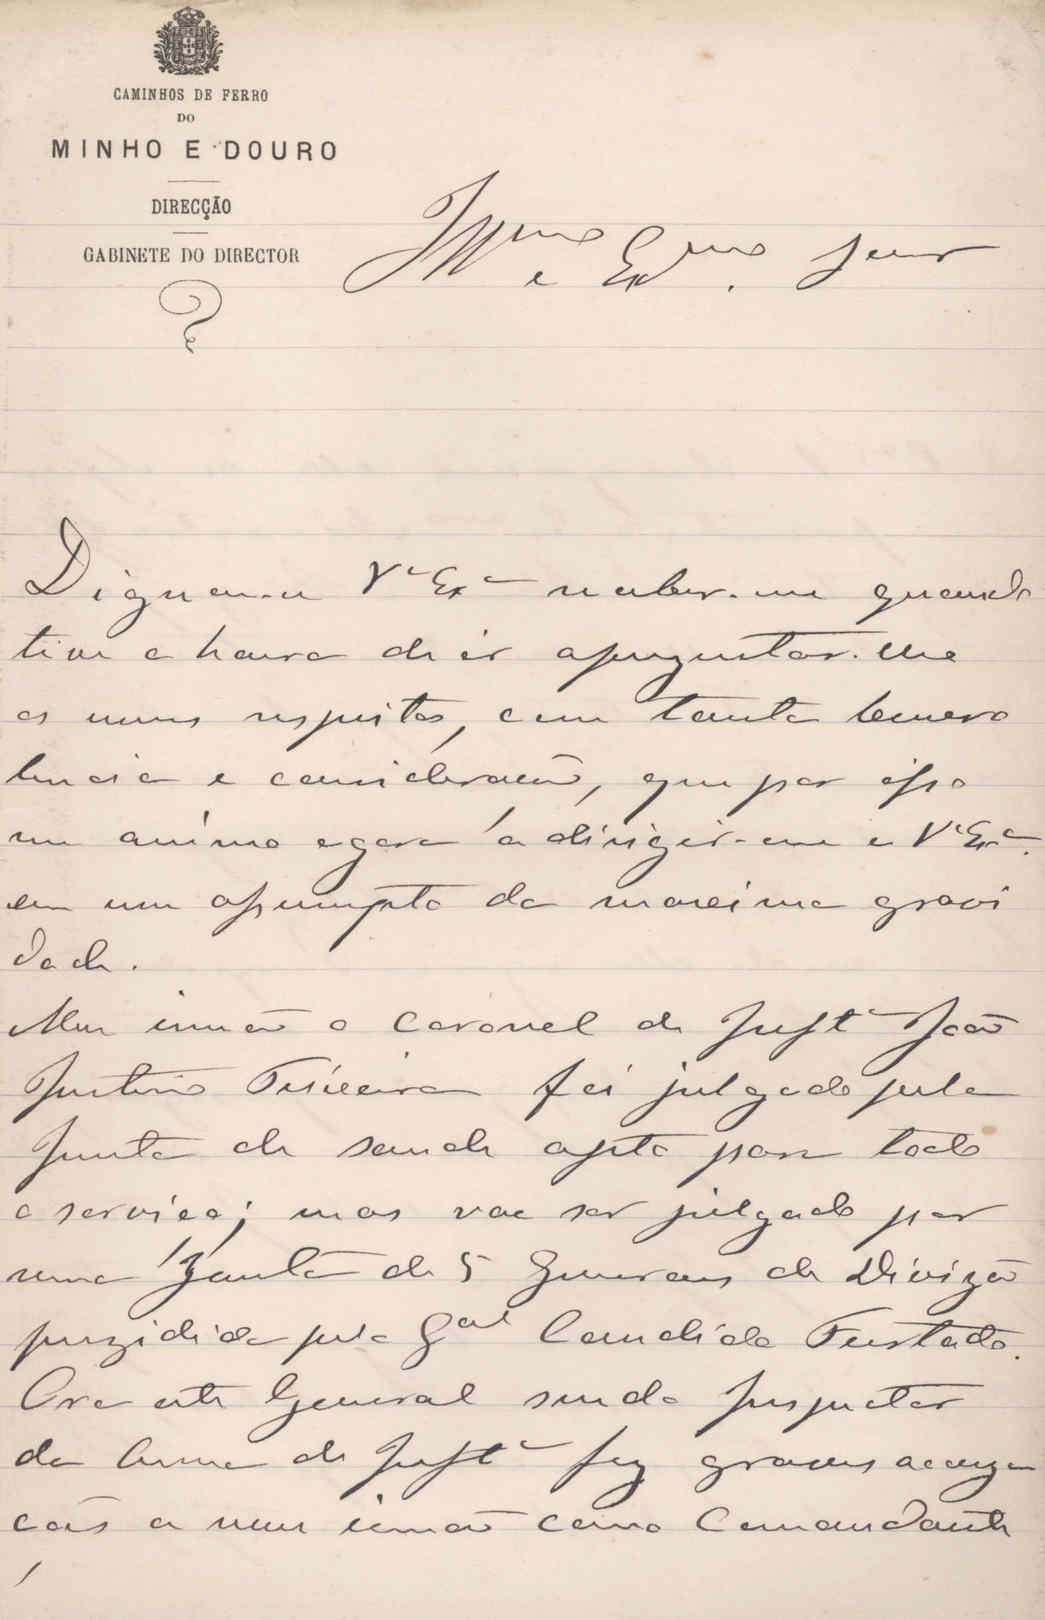 CAMINHOS DE FERRO
DO
MINHO E DOURO
DIRECÇÃO
GABINETE DO DIRECTOR
Illmo e Exmo. Senr
Dignou-se Va Exa receber-me quando
tive a honra de ir aprezentar-lhe
os meus respeitos, com tanta benevo
lencia e consideração, que por isso
me animo agora a dirigir-me a Va Exa.
em um assumpto da maxima gravi
dade.
Meu irmão o Coronel de Infta João
Justino Teixeira foi julgado pela
Junta de saude apto para todo
o serviço; mas vae ser julgado por
uma Junta de 5 Generaes de Divizão
prezidida pelo Gal Candido Furtado.
Ora este General sendo Inspector
da Arma de Infta fez graves accuza
ções a meu irmão como Comandante